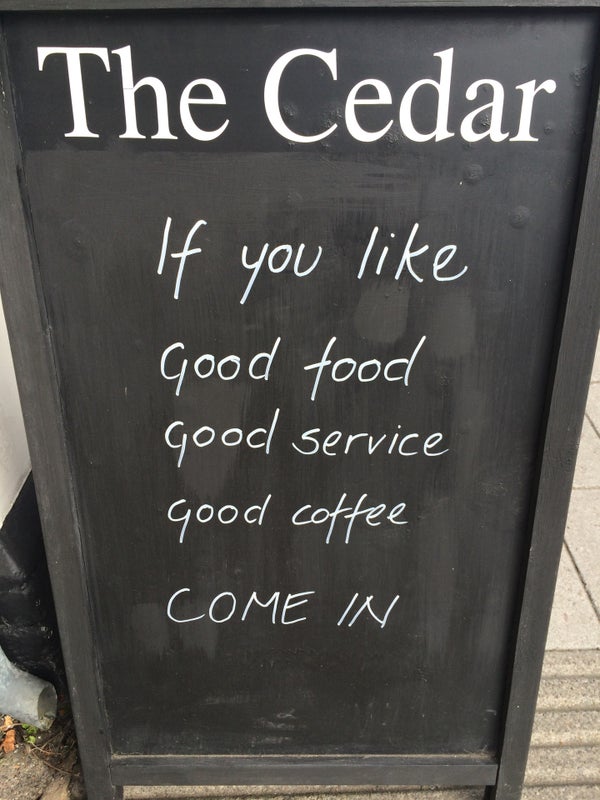 The Cedar
If you like
Good food
Good service
Good coffee
COME IN